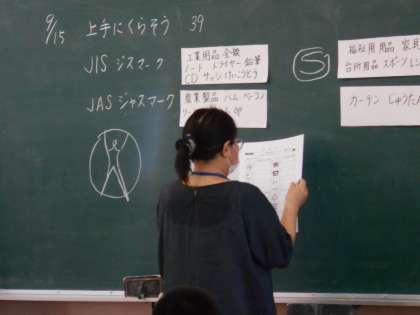 9/15 上手にくらそう 39
JIS ジスマーク
工業用品 金融
ノート ドライヤー 鉛筆
CD サッシ けいこうとう
S
福祉用 用品 家具
台所用品 スポーツ
JAS ジャスマーク
農業製品 ハム ベーコン
カーテン じゅうたん